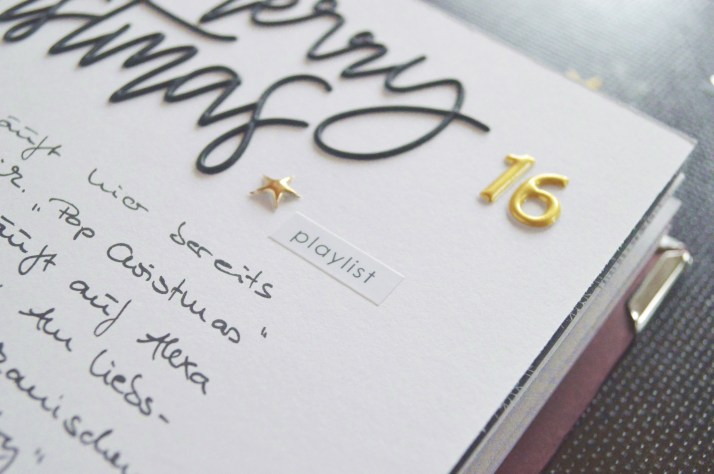 Merry
Christmas
16
playlist
läuft hier bereits
"Pop Christmas"
läuft auf Alexa
Am liebs-